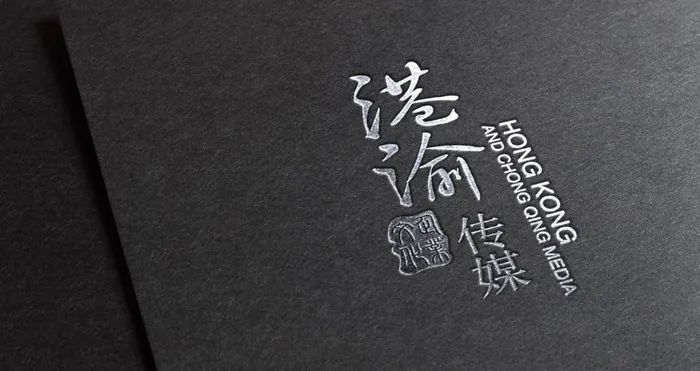 港渝
传媒
HONG KONG
AND CHONG QING MEDIA